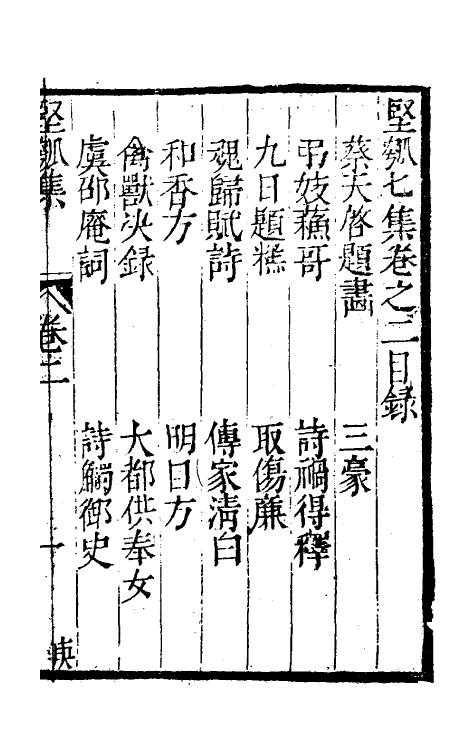 堅瓠七集卷之二目錄
蔡天啓題畵 三豪
弔妓蘓哥 詩禍得釋
九日題糕 取傷廉
魂歸賦詩 傳家清白
和香方 明日方
禽獸决録 大都供奉女
虞邵庵詞 詩觸御史
堅瓠集 卷二 一